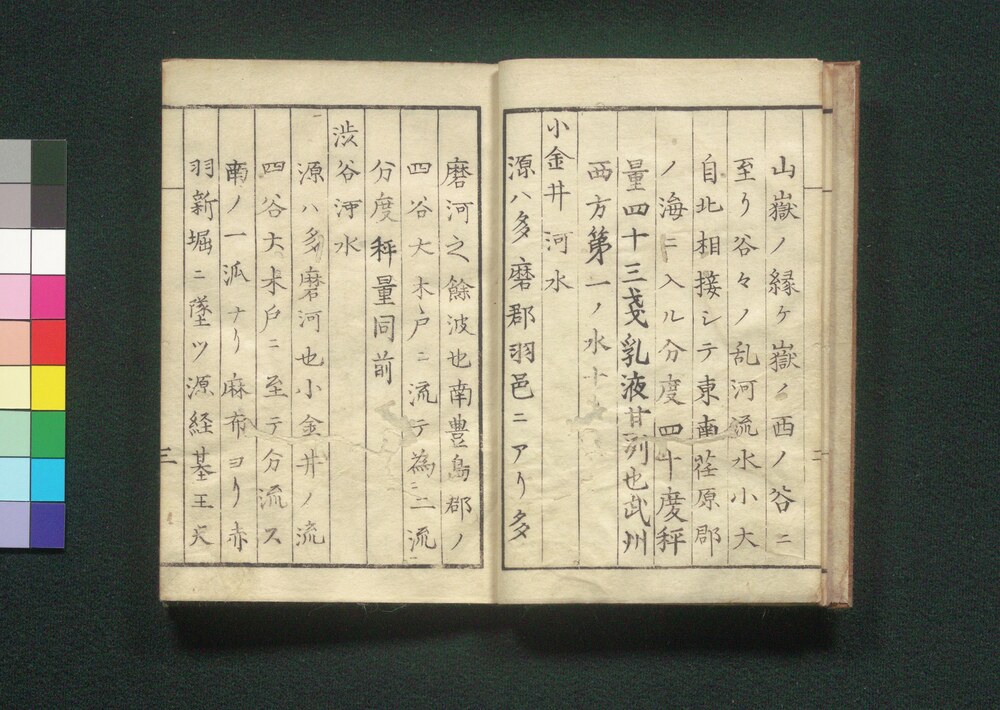 山嶽ノ縁ケ嶽ノ西ノ谷ニ
至リ谷々ノ乱河流水小大
自北相接シテ東南荏原郡
ノ海ニ入ル分度四十度秤
量四十三戔乳液甘冽也武州
西方第一ノ水ナ
小金井河水
源ハ多磨郡羽邑ニアリ多
磨河之餘波也南豊島郡ノ
四谷大木戸ニ流テ為二流
分度秤量同前
渋谷河水
源ハ多磨河也小金井ノ流
四谷大木戸ニ至テ分流ス
南ノ一派ナリ麻布ヨリ赤
羽新堀ニ墜ツ源経基王天
三